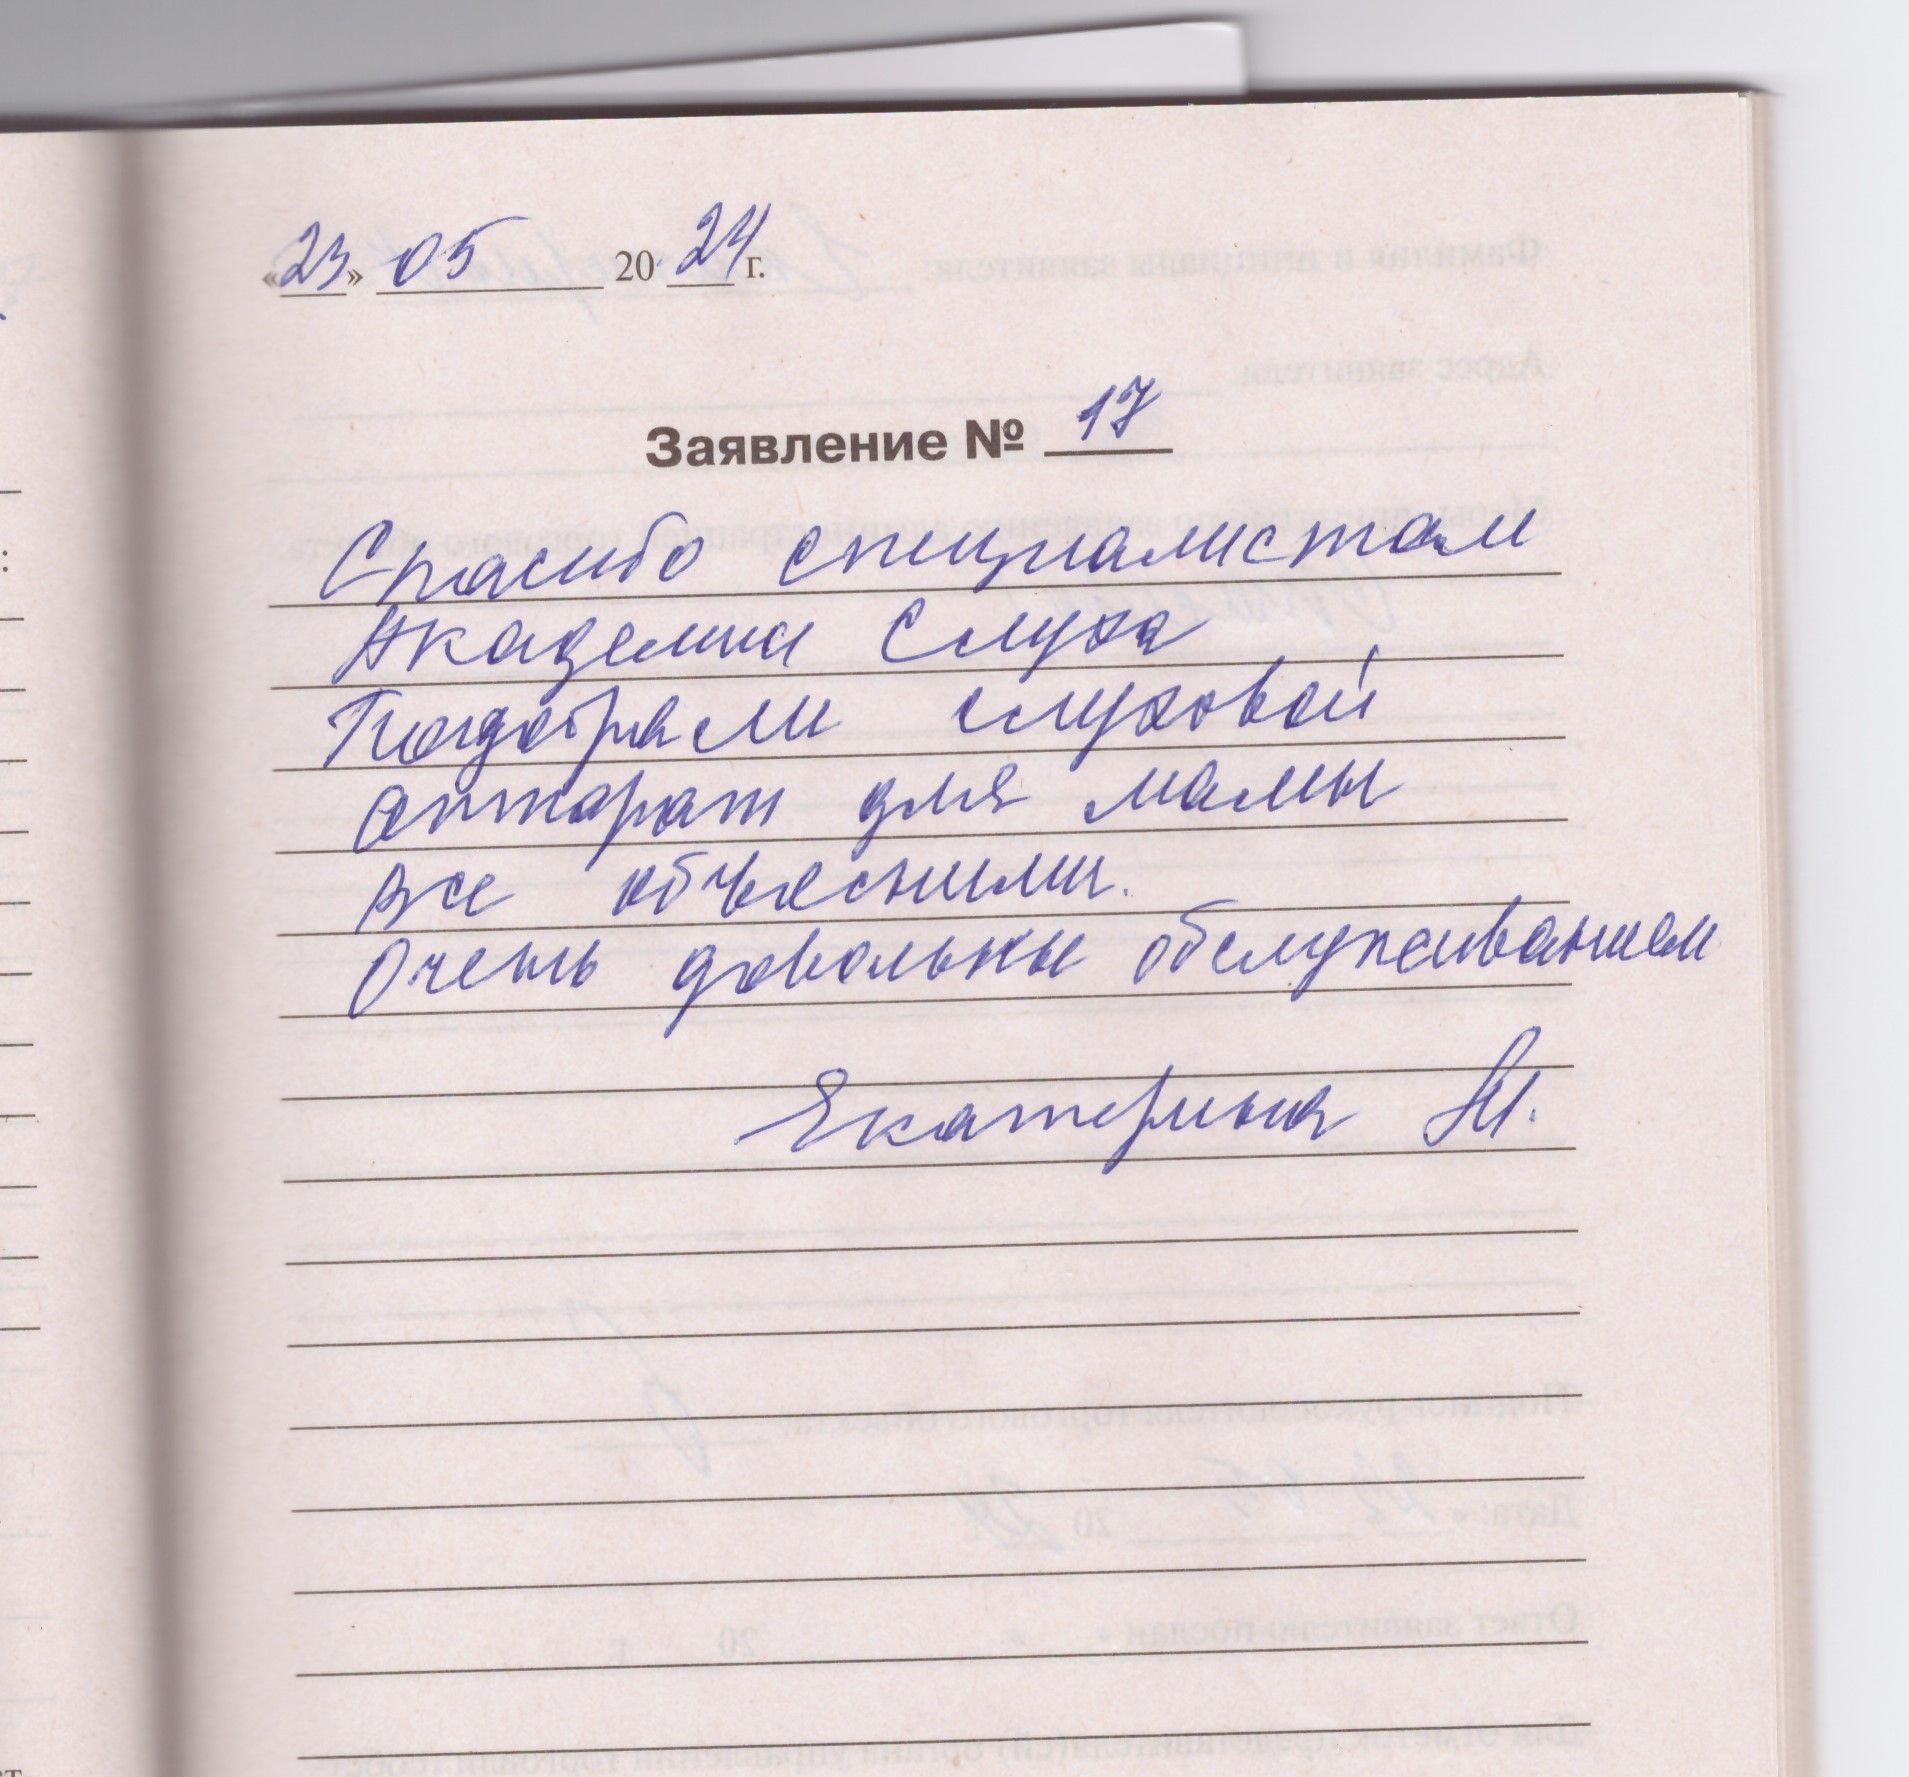 «23» 05 2024 г.
Заявление № 17
Спасибо специалистам
Академии Слуха
Подобрали слуховой
аппарат для мамы
все объяснили.
Очень довольны обслуживанием
Екатерина М.